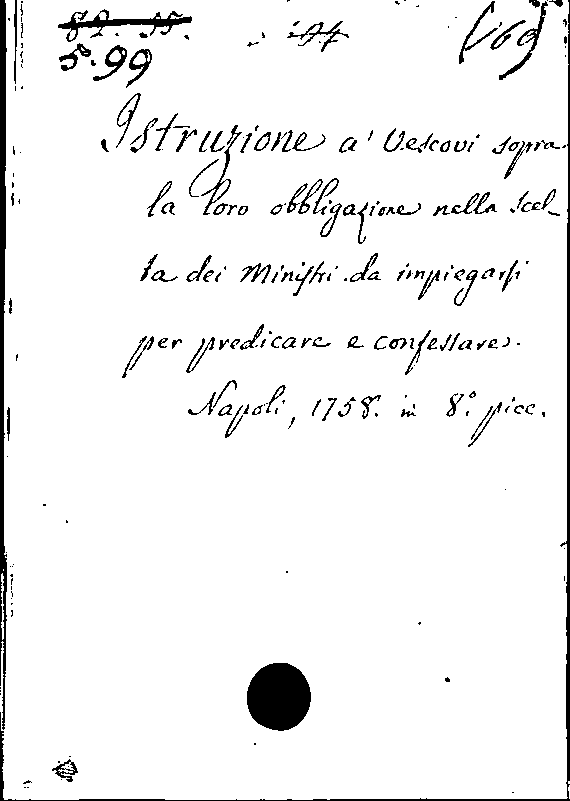 82. 55.
5.99
(169)
Istruzione a' Vescovi sopra
la loro obbligazione nella scel_
ta dei Ministri da impiegarsi
per predicare e confessare.
Napoli, 1758. in 8.° picc.